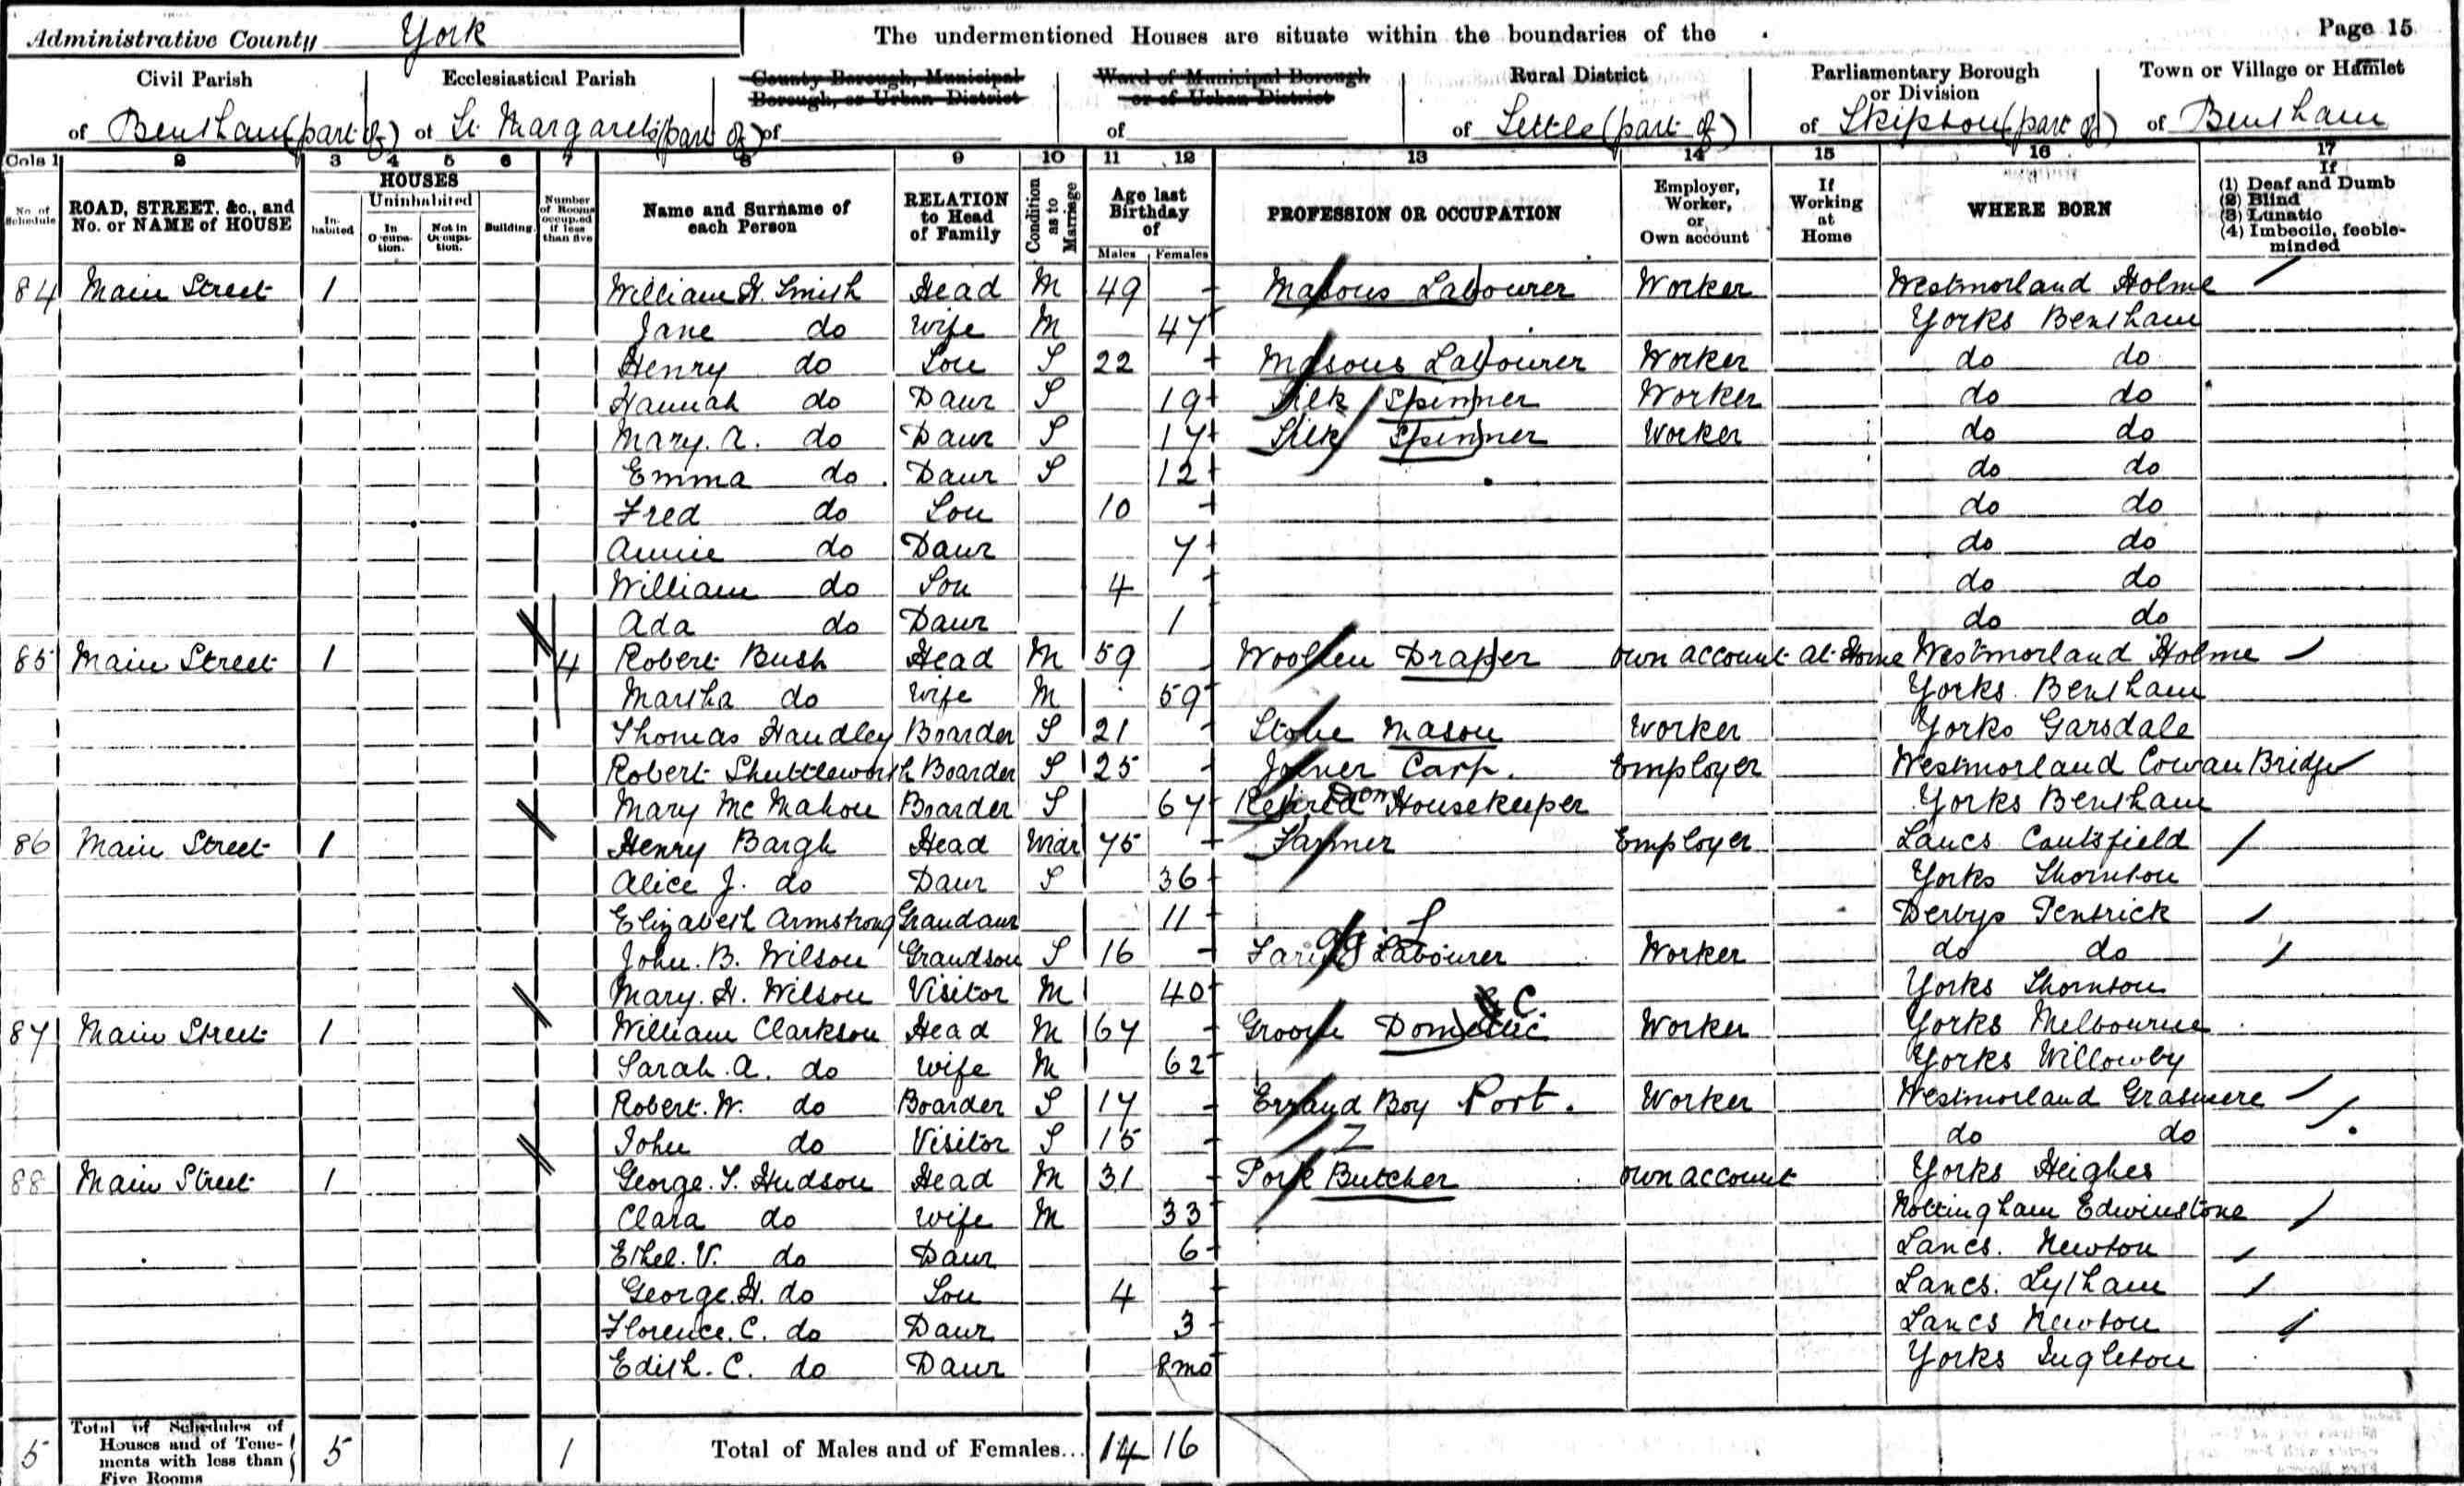 Administrative County York The undermentioned Houses are situate within the boundaries of the Page 15
Civil Parish Ecclesiastical Parish County Borough, Municipal Borough, or Urban District Ward of Municipal Borough or of Urban District Rural District Parliamentary Borough or Division Town or Village or Hamlet
of Bentham (part of) of St. Margarets (part of) of of of Settle (part of) of Skipton (part of) of Bentham
Cols 1 2 3 4 5 6 7 8 9 10 11 12 13 14 15 16 17
No. of Schedule ROAD, STREET, &c., and No. or NAME of HOUSE HOUSES Inhabited Uninhabited In Occupation. Not in Occupation. Building Number of Rooms occupied if less than five Name and Surname of each Person RELATION to Head of Family Condition as to Marriage Age last Birthday of Males Females PROFESSION OR OCCUPATION Employer, Worker, or Own account If Working at Home WHERE BORN If (1) Deaf and Dumb (2) Blind (3) Lunatic (4) Imbecile, feeble-minded
84 Main Street 1 William H. Smith Head M 49 Masons Labourer Worker Westmorland Holme
Jane do Wife M 47 Yorks Bentham
Henry do Son S 22 Masons Labourer Worker do do
Hannah do Daur S 19 Silk Spinner Worker do do
Mary. A. do Daur S 17 Silk Spinner Worker do do
Emma do Daur S 12 do do
Fred do Son 10 do do
Annie do Daur 7 do do
William do Son 4 do do
Ada do Daur 1 do do
85 Main Street 1 4 Robert Bush Head M 59 Woollen Draper own account at Home Westmorland Holme
Martha do Wife M 59 Yorks Bentham
Thomas Handley Boarder S 21 Stone Mason Worker Yorks Garsdale
Robert Shuttleworth Boarder S 25 Joiner Carp. Employer Westmorland Cowan Bridge
Mary Mc Mahon Boarder S 67 Retired Dom Housekeeper Yorks Bentham
86 Main Street 1 Henry Bargh Head Widr 75 Farmer Employer Lancs Cantsfield
Alice J. do Daur S 36 Yorks Thornton
Elizabeth Armstrong Grandaur 11 Derbys Pentrick
John. B. Wilson Grandson S 16 Farm Labourer Worker do do
Mary. H. Wilson Visitor M 40 Yorks Thornton
87 Main Street 1 William Clarkson Head M 67 Groom Domestic Worker Yorks Melbourne
Sarah. A. do Wife M 62 Yorks Willowby
Robert. W. do Boarder S 17 Errand Boy Port. Worker Westmorland Grasmere
John do Visitor S 15 do do
88 Main Street 1 George. T. Hudson Head M 31 Pork Butcher own account Yorks Heighes
Clara do Wife M 33 Nottingham Edwinstone
Ethel. V. do Daur 6 Lancs. Newton
George. H. do Son 4 Lancs. Lytham
Florence. C. do Daur 3 Lancs Newton
Edith. C. do Daur 8mo Yorks Ingleton
5 Total of Schedules of Houses and of Tenements with less than Five Rooms 5 1 Total of Males and of Females... 14 16